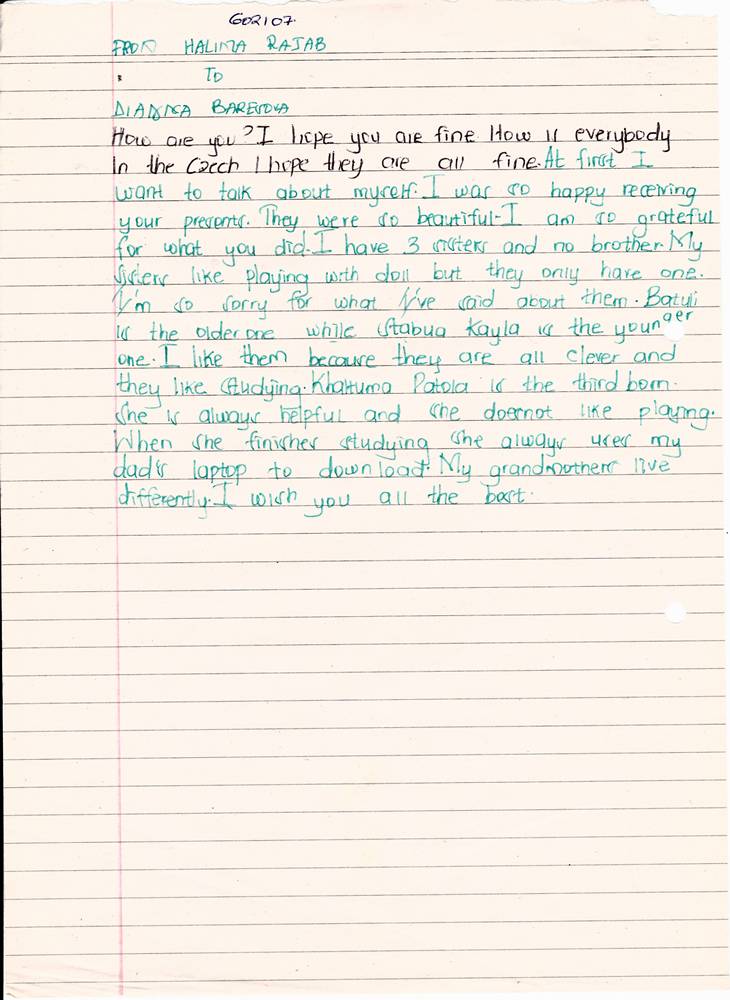 G02107.
FROM HALIMA RAJAB
TO
DIANNCA BARESOVA
How are you? I hope you are fine. How is everybody
In the Czech I hope they are all fine. At first I
want to talk about myself. I was so happy receiving
your presents. They were so beautiful. I am so grateful
for what you did. I have 3 sisters and no brother. My
sisters like playing with doll but they only have one.
I'm so sorry for what I've said about them. Batuli
is the older one while Stabua Kayla is the younger
one. I like them because they are all clever and
they like studying. Khaltuma Patola is the third born.
she is always helpful and she doesnot like playing.
When she finishes studying she always uses my
dad's laptop to download. My grandmothers live
differently. I wish you all the best.